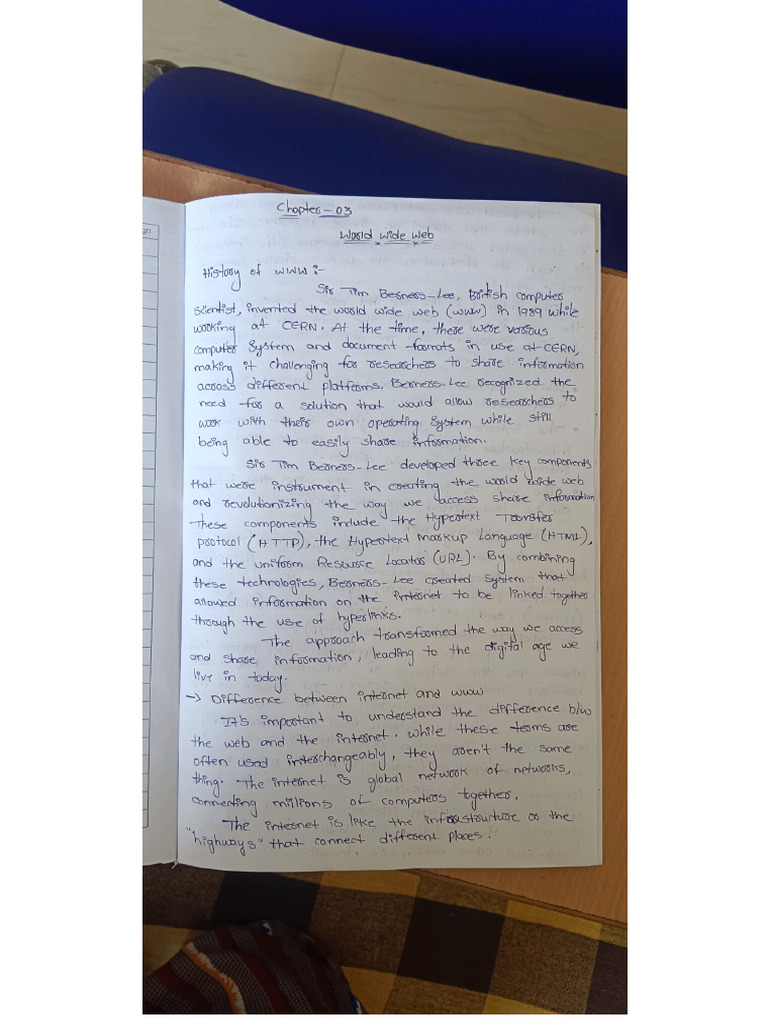 Chapter-03
World Wide Web
History of WWW :-
Sir Tim Berners-Lee, British computer
scientist, invented the world wide web (WWW) in 1989 while
working at CERN. At the time, there were various
computer System and document formats in use at CERN,
making it challenging for researchers to share information
across different platforms. Berners-Lee recognized the
need for a solution that would allow researchers to
work with their own operating System while still
being able to easily share information.
Sir Tim Berners-Lee developed three key components
that were instrument in creating the world wide web
and revolutionizing the way we access share information
These components include the Hypertext Transfer
protocol (HTTP), the Hypertext Markup Language (HTML),
and the uniform Resource Locator (URL). By combining
these technologies, Berners-Lee created system that
allowed information on the internet to be linked together
through the use of hyperlinks.
The approach transformed the way we access
and share information, leading to the digital age we
live in today.
→ Difference between internet and WWW
It's important to understand the difference b/w
the web and the internet. While these terms are
often used interchangeably, they aren't the same
thing. The internet is global network of networks,
connecting millions of computers together.
The internet is like the infrastructure or the
"highways" that connect different places.